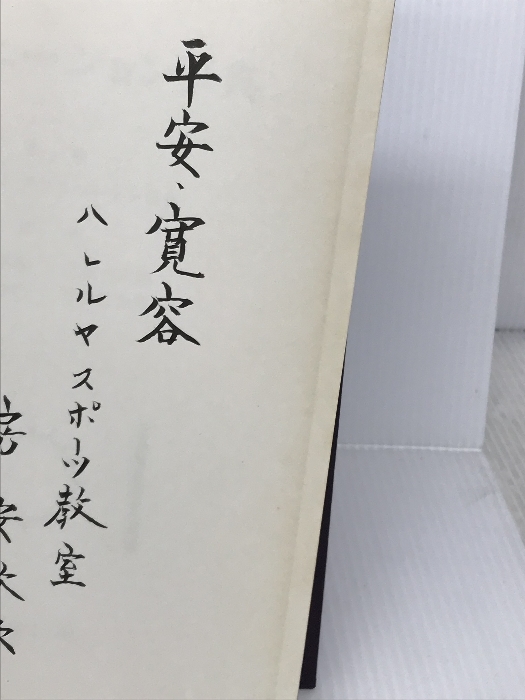 平安、寛容
ハレルヤスポーツ教室
安次